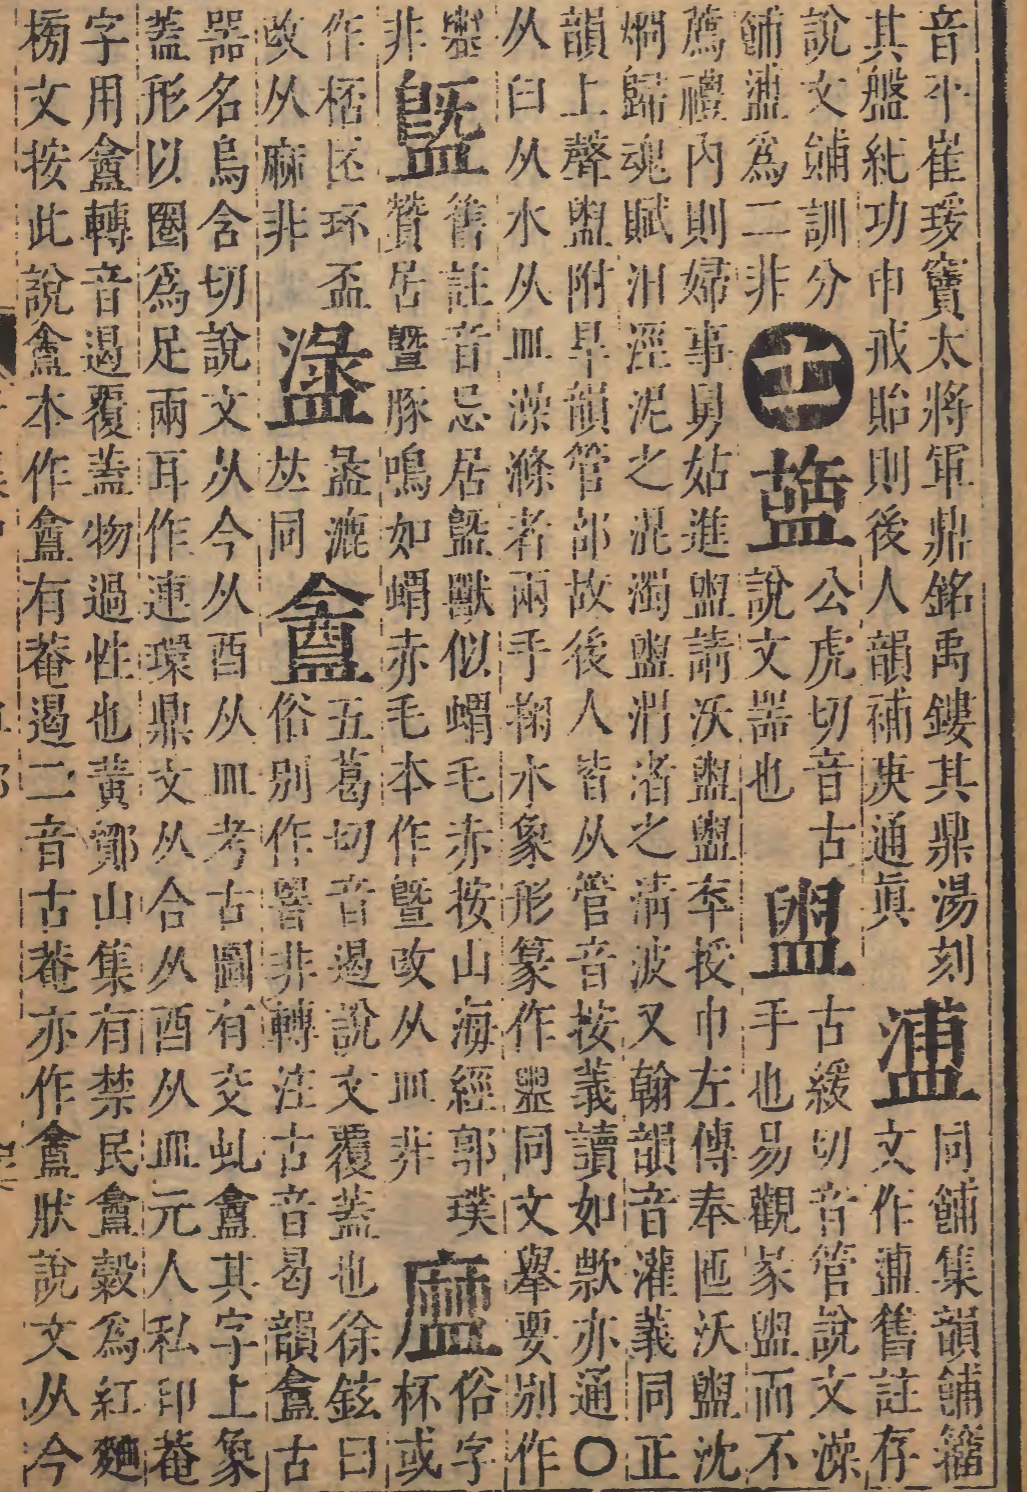 音 崔瑗竇太將軍鼎銘禹鏤其鼎湯刻
其盤紀功申戒貽則後人韻補庚通眞
盙
同 集韻 簠
文作盙舊註存
說文 訓分
盙爲二非
十一
公虎切音古
說文器也
盥
古緩切音管說文澡
手也易觀彖盥而不
薦禮內則婦事舅姑進盥請沃盥盥卒授巾左傳奉匜沃盥沈
炯歸魂賦汨淫泥之混濁盥渭渚之淸波又翰韻音灌義同正
韻上聲盥附旱韻管部故後人皆从管音按義讀如款亦通〇
从臼从水从皿澡滌者兩手掬水象形篆作 同文舉要別作
非
舊註音忌居 獸似蝟毛赤按山海經郭璞
贊居暨豚鳴如蝟赤毛本作暨改从皿非
俗字
杯或
作桮 环盃
改从麻非
盝
盠漉
𠀤同
盦
五葛切音遏說文覆蓋也徐鉉曰
俗別作罯非轉注古音曷韻盦古
器名烏含切說文从今从酉从皿考古圖有交虬盦其字上象
蓋形以圈爲足兩耳作連環鼎文从合从酉从皿元人私印菴
字用盦轉音遏覆蓋物過性也黃鄮山集有禁民盦穀爲紅麯
榜文按此說盦本作盦有菴遏二音古菴亦作盦狀說文从今